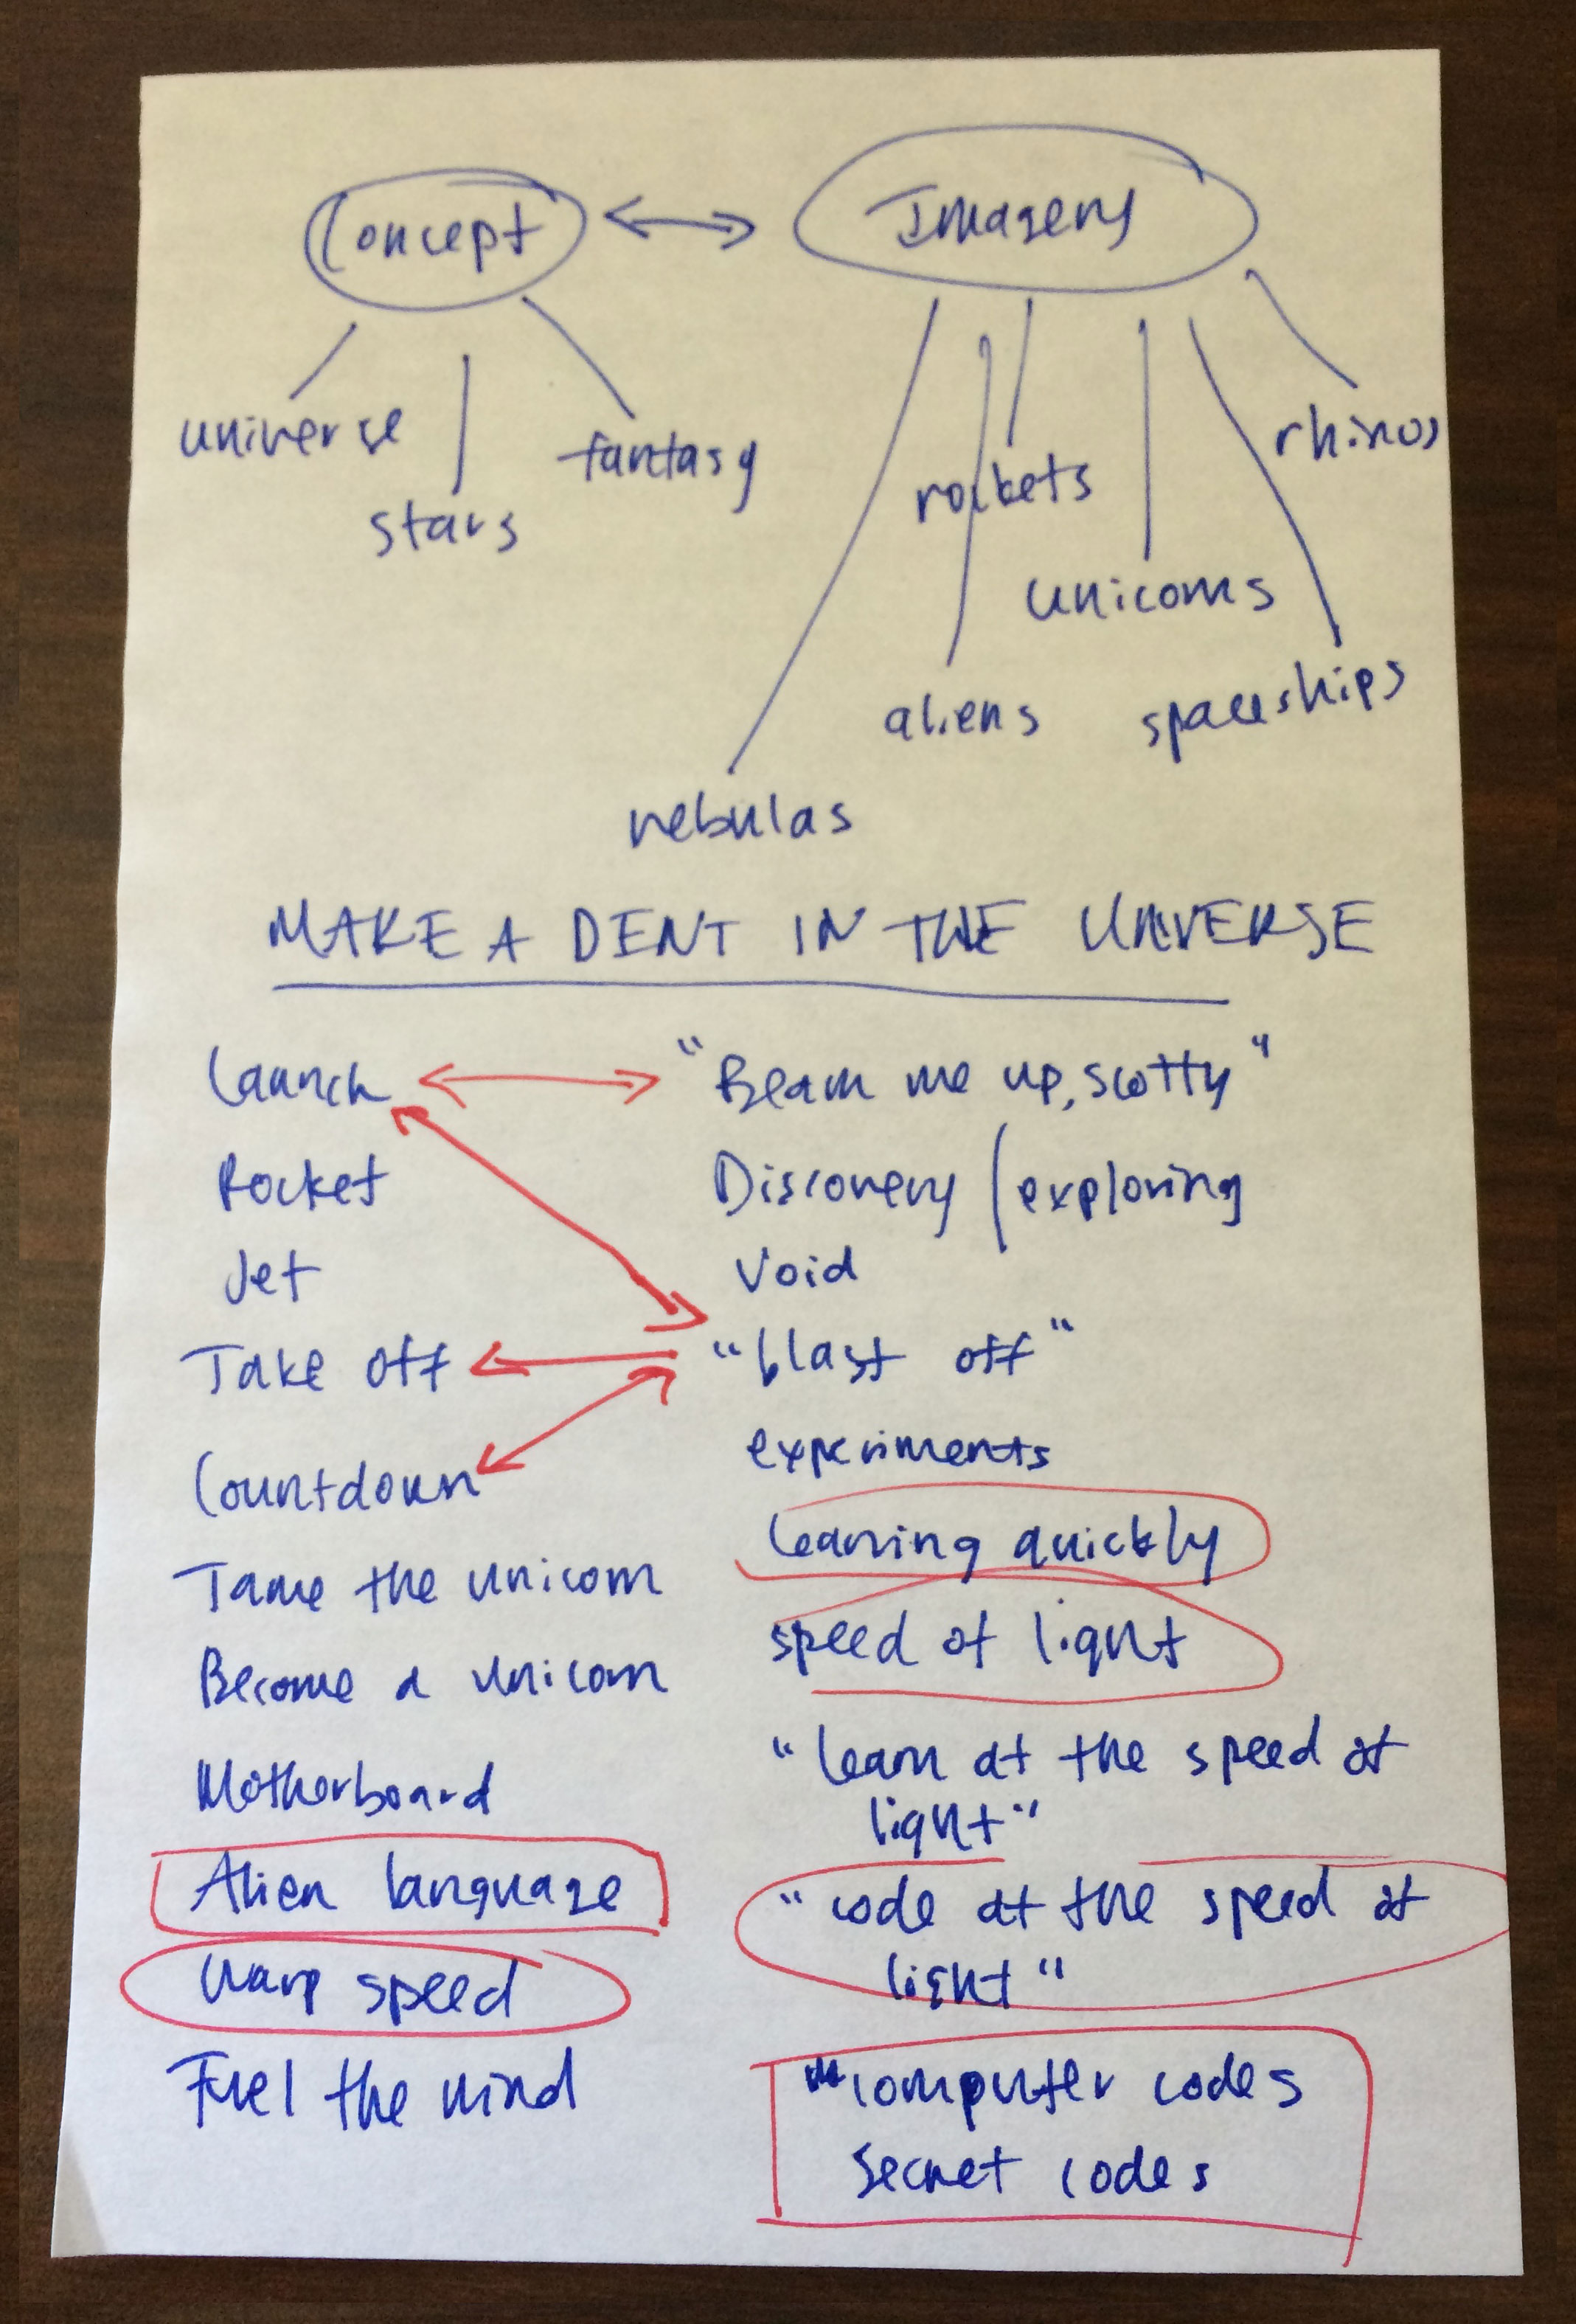 Concept Imagery
universe
stars
fantasy
rockets
rhinos
unicorns
aliens
spaceships
nebulas
MAKE A DENT IN THE UNIVERSE
Launch
Rocket
Jet
Take off
Countdown
Tame the unicorn
Become a unicorn
Motherboard
Alien language
Warp speed
Fuel the mind
"Beam me up, scotty"
Discovery / exploring
Void
"blast off"
experiments
learning quickly
speed of light
"learn at the speed of
light"
"code at the speed of
light"
computer codes
Secret codes